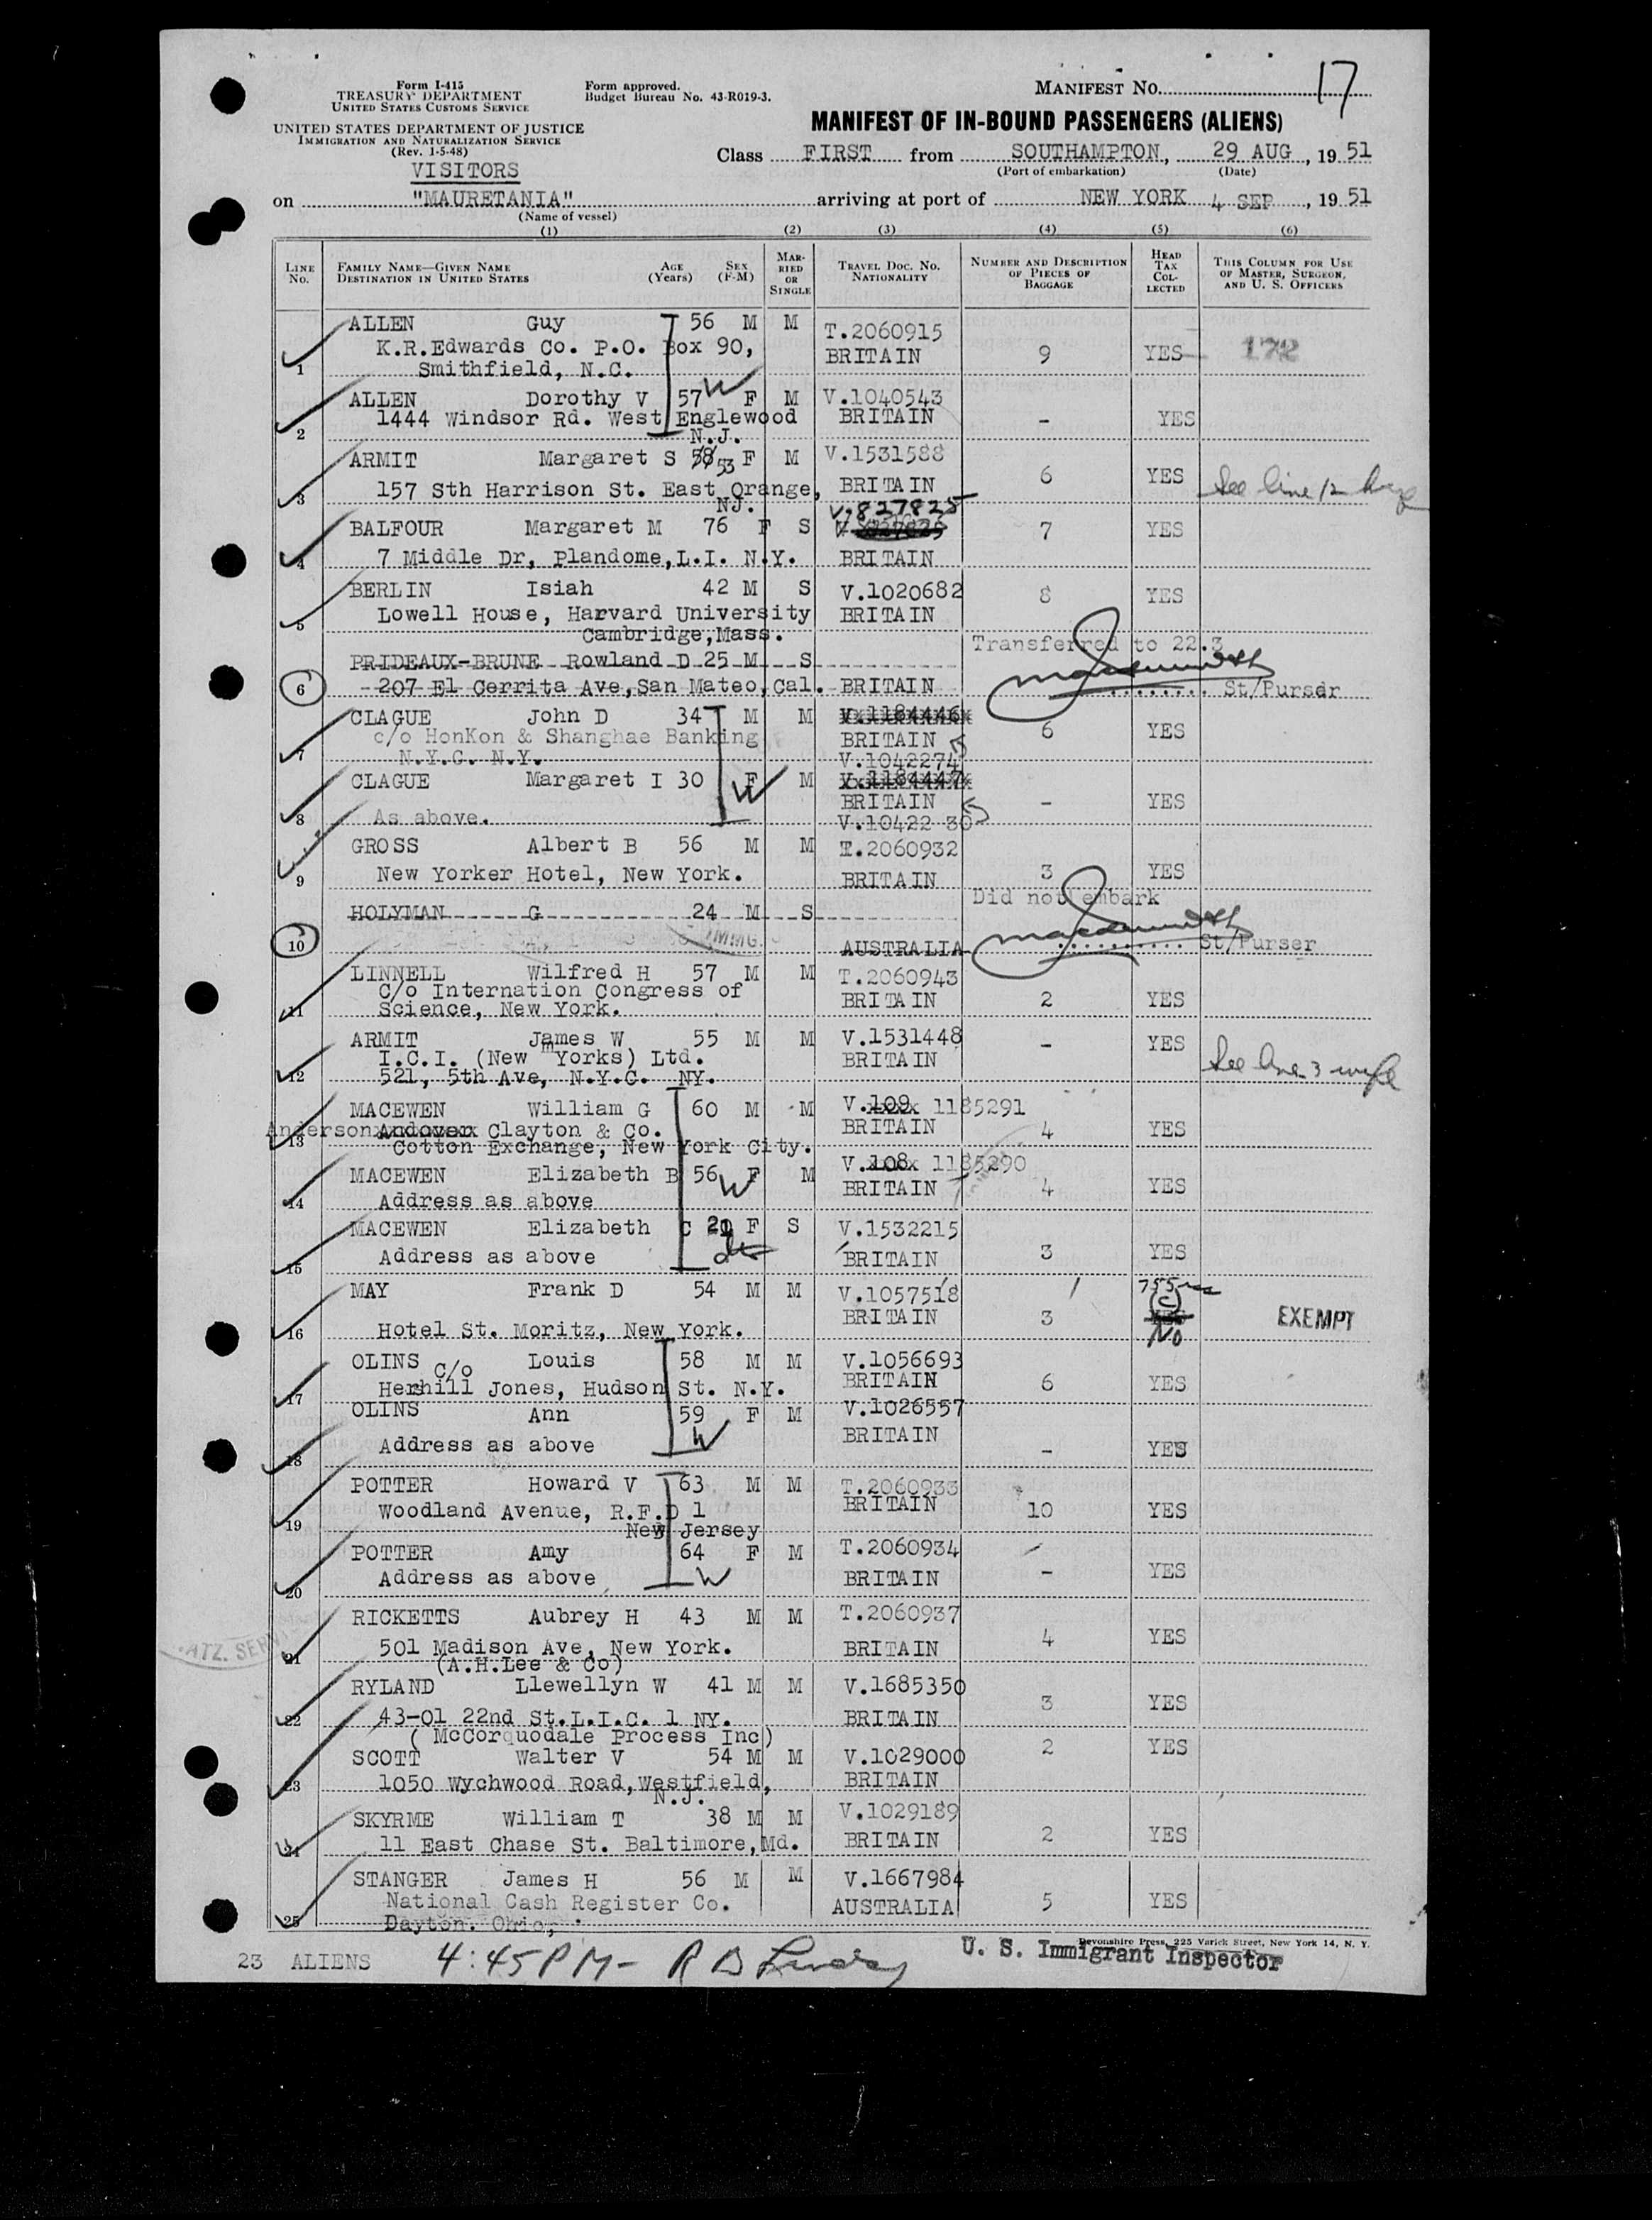 Form I-415
TREASURY DEPARTMENT
UNITED STATES CUSTOMS SERVICE
Form approved.
Budget Bureau No. 43-R019-3.
MANIFEST NO. 17
UNITED STATES DEPARTMENT OF JUSTICE
IMMIGRATION AND NATURALIZATION SERVICE
(Rev. 1-5-48)
MANIFEST OF IN-BOUND PASSENGERS (ALIENS)
VISITORS
Class FIRST from SOUTHAMPTON, 29 AUG, 19 51
(Port of embarkation) (Date)
on "MAURETANIA" arriving at port of NEW YORK 4 SEP, 19 51
(Name of vessel)
(1) (2) (3) (4) (5) (6)
LINE No. FAMILY NAME—GIVEN NAME DESTINATION IN UNITED STATES AGE (Years) SEX (F-M) MARRIED OR SINGLE TRAVEL DOC. NO. NATIONALITY NUMBER AND DESCRIPTION OF PIECES OF BAGGAGE HEAD TAX COLLECTED THIS COLUMN FOR USE OF MASTER, SURGEON, AND U. S. OFFICERS
ALLEN Guy 56 M M T.2060915
K.R.Edwards Co. P.O. Box 90, BRITAIN 9 YES 172
1 Smithfield, N.C.
ALLEN Dorothy V 57 W F M V.1040543
1444 Windsor Rd. West Englewood BRITAIN - YES
2 N.J.
ARMIT Margaret S 58 53 F M V.1531588
157 Sth Harrison St. East Orange, BRITAIN 6 YES See line 12
3 NJ.
V.827825
BALFOUR Margaret M 76 F S 7 YES
4 7 Middle Dr, Plandome,L.I. N.Y. BRITAIN
BERLIN Isiah 42 M S V.1020682 8 YES
Lowell House, Harvard University BRITAIN
5 Cambridge,Mass.
Transferred to 22.3
PRIDEAUX-BRUNE Rowland D 25 M S
6 207 El Cerrita Ave,San Mateo,Cal. BRITAIN St/Purser
CLAGUE John D 34 M M V.1184446
c/o HonKon & Shanghae Banking BRITAIN 6 YES
7 N.Y.C. N.Y. V.1042274
CLAGUE Margaret I 30 F W M V.1184447
BRITAIN - YES
8 As above. V.10422 30
GROSS Albert B 56 M M T.2060932
9 New Yorker Hotel, New York. BRITAIN 3 YES
Did not embark
HOLYMAN G 24 M S
10 IMMG. AUSTRALIA St/Purser
LINNELL Wilfred H 57 M M T.2060943
C/o Internation Congress of BRITAIN 2 YES
11 Science, New York.
ARMIT James W 55 M M V.1531448 - YES
I.C.I. (New Yorks) Ltd. BRITAIN See line 3 wife
12 521, 5th Ave, N.Y.C. NY.
MACEWEN William G 60 M M V.109 1185291
Anderson Andover Clayton & Co. BRITAIN 4 YES
13 Cotton Exchange, New York City.
MACEWEN Elizabeth B 56 W F M V.108 1185290
14 Address as above BRITAIN 4 YES
MACEWEN Elizabeth C 21 F S V.1532215
15 Address as above BRITAIN 3 YES
MAY Frank D 54 M M V.1057518
16 Hotel St. Moritz, New York. BRITAIN 3 (C) YES No EXEMPT
OLINS c/o Louis 58 M M V.1056693
17 Hershill Jones, Hudson St. N.Y. BRITAIN 6 YES
OLINS Ann 59 F M V.1026557
18 Address as above W BRITAIN - YES
POTTER Howard V 63 M M T.2060933
19 Woodland Avenue, R.F.D 1 BRITAIN 10 YES
New Jersey
POTTER Amy 64 F M T.2060934
20 Address as above W BRITAIN - YES
RICKETTS Aubrey H 43 M M T.2060937
21 501 Madison Ave, New York. BRITAIN 4 YES
(A.H.Lee & Co)
RYLAND Llewellyn W 41 M M V.1685350
22 43-01 22nd St.L.I.C. 1 NY. BRITAIN 3 YES
( McCorquodale Process Inc)
SCOTT Walter V 54 M M V.1029000 2 YES
23 1050 Wychwood Road,Westfield, BRITAIN
N.J.
SKYRME William T 38 M M V.1029189
24 11 East Chase St. Baltimore,Md. BRITAIN 2 YES
STANGER James H 56 M M V.1667984
National Cash Register Co. AUSTRALIA 5 YES
25 Dayton. Ohio,
Devonshire Press, 225 Varick Street, New York 14, N. Y.
23 ALIENS 4:45 PM- U. S. Immigrant Inspector